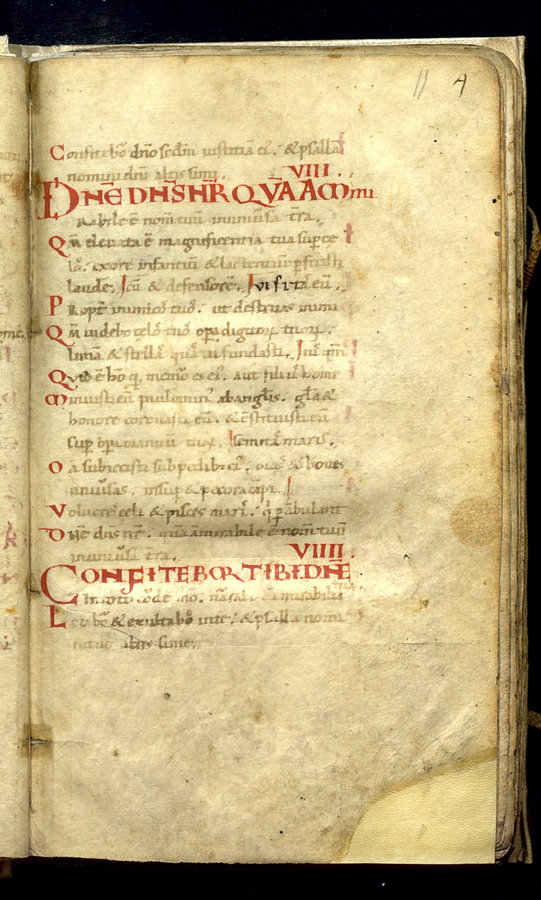 4
Confitebo dno secdm iustitia ei. & psalla
nomini dni altissimi. VIII.
DNE DNS NR QVA ADMI
Rabile e nom tuu in uniusa tra.
Qm eleuata e magnificentia tua sup ce
los. exore infantiu & lactentiu pfecisti
laude. & defensore.
Propt inimicos tuos. ut destruas inimi
Qm uidebo celos tuos opa digitor tuor.
luna & stellas que tu fundasti.
Quid e ho q memor es ei. aut filius homi
Minuisti eu paulominus abanglis. gla &
honore coronasti eu. & constituisti eu
sup opa manuu tuar.
Oia subiecisti subpedib ei. oues & boues
uniuersas. insup & pecora capi.
Volucres celi & pisces maris. q pambulant
Dne dns nr. qua admirabile e nom tuu
inuniusa tra. VIIII.
CONFITEBOR TIBI DNE
in toto corde meo. mirabilia
Letabor & exultabo inte. & psalla nomi
ni tuo altissime.